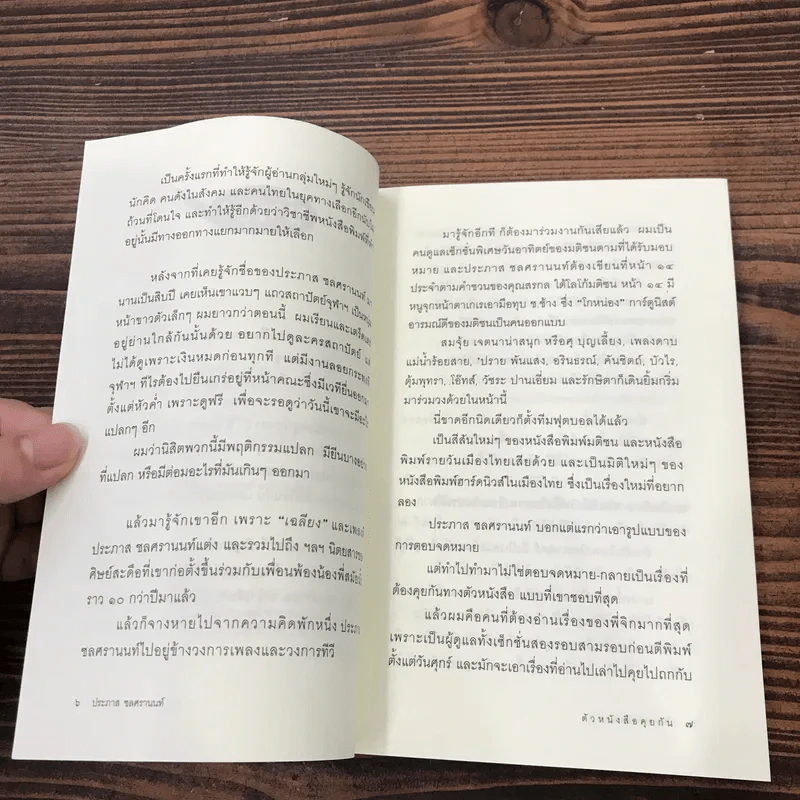 เป็นครั้งแรกที่ทำให้รู้จักผู้อ่านกลุ่มใหม่ๆ รู้จักนักเขียน
นักคิด คนดังในสังคม และคนไทยในยุคทางเลือกอีก
ถ้วนที่โดนใจ และทำให้รู้อีกด้วยว่าวิชาชีพหนังสือพิมพ์ที่
อยู่นั้นมีทางออกทางแยกมากมายให้เลือก
หลังจากที่เคยรู้จักชื่อของประภาส ชลศรานนท์
นานเป็นสิบปี เคยเห็นเขาแวบๆ แถวสถาปัตย์จุฬาฯ เป็น
หน้าขาวตัวเล็กๆ ผมยาวกว่าตอนนี้ ผมเรียนและเตร็ดเตร่
อยู่ย่านใกล้กันนั้นด้วย อยากไปดูละครสถาปัตย์
ไม่ได้ดูเพราะเงินหมดก่อนทุกที แต่มีงานลอยกระทง
จุฬาฯ ทีไรต้องไปยืนเกร่อยู่ที่หน้าคณะซึ่งมีเวทียื่นออก
ตั้งแต่หัวค่ำ เพราะดูฟรี เพื่อจะรอดูว่าวันนี้เขาจะมีอะไร
แปลกๆ อีก
ผมว่านิสิตพวกนี้มีพฤติกรรมแปลก มียีนบางอย่าง
ที่แปลก หรือมีต่อมอะไรที่มันเกินๆ ออกมา
แล้วมารู้จักเขาอีก เพราะ “เฉลียง” และเพลงที่
ประภาส ชลศรานนท์แต่ง และรวมไปถึง ฯลฯ นิตยสาร
ศิษย์สะดือที่เขาก่อตั้งขึ้นร่วมกับเพื่อนพ้องน้องพี่สมัย
ราว ๑๐ กว่าปีมาแล้ว
แล้วก็จางหายไปจากความคิดพักหนึ่ง ประภาส
ชลศรานนท์ไปอยู่ข้างวงการเพลงและวงการทีวี
๖ ประภาส ชลศรานนท์
มารู้จักอีกที ก็ต้องมาร่วมงานกันเสียแล้ว ผมเป็น
คนดูแลเซ็กชั่นพิเศษวันอาทิตย์ของมติชนตามที่ได้รับมอบ
หมาย และประภาส ชลศรานนท์ต้องเขียนที่หน้า ๑๔
ประจำตามคำชวนของคุณสรกล ใต้โลโก้มติชน หน้า ๑๔ มี
หนูจุกหน้าตาเกเรเอามือทุบ ช.ช้าง ซึ่ง “โกหน่อง” การ์ตูนิสต์
อารมณ์ดีของมติชนเป็นคนออกแบบ
สมจุ้ย เจตนาน่าสนุก หรือศุ บุญเลี้ยง, เพลงดาบ
แม่น้ำร้อยสาย, 'ปราย พันแสง, อรินธรณ์, คันธิตถ์, บัวไร,
ตุ้มพุทรา, โอ๊ทส์, วัชระ ปานเอี่ยม และรักษิตาก็เดินยิ้มกริ่ม
มาร่วมวงด้วยในหน้านี้
นี่ขาดอีกนิดเดียวก็ตั้งทีมฟุตบอลได้แล้ว
เป็นสีสันใหม่ๆ ของหนังสือพิมพ์มติชน และหนังสือ
พิมพ์รายวันเมืองไทยเสียด้วย และเป็นมิติใหม่ๆ ของ
หนังสือพิมพ์ฮาร์ดนิวส์ในเมืองไทย ซึ่งเป็นเรื่องใหม่ที่อยาก
ลอง
ประภาส ชลศรานนท์ บอกแต่แรกว่าเอารูปแบบของ
การตอบจดหมาย
แต่ทำไปทำมาไม่ใช่ตอบจดหมาย-กลายเป็นเรื่องที่
ต้องคุยกันทางตัวหนังสือ แบบที่เขาชอบที่สุด
แล้วผมคือคนที่ต้องอ่านเรื่องของพี่จิกมากที่สุด
เพราะเป็นผู้ดูแลทั้งเซ็กชั่นสองรอบสามรอบก่อนตีพิมพ์
ตั้งแต่วันศุกร์ และมักจะเอาเรื่องที่อ่านไปเล่าไปคุยไปถกกับ
ตัวหนังสือคุยกัน ๗